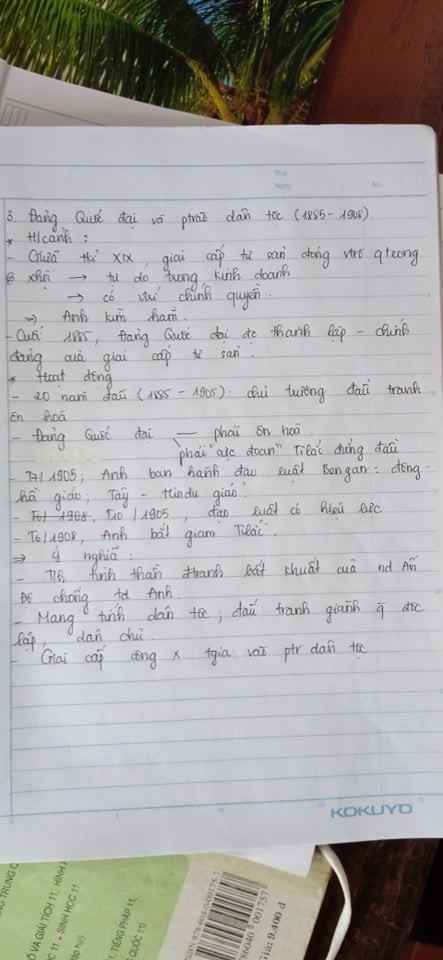 3. Đảng Quốc đại và ptrào dân tộc (1885 - 1908)
* H/cảnh :
- Giữa tkỉ XIX, giai cấp tư sản đóng vtrò qtrọng
ở xhội → tự do trong kinh doanh
→ có chính quyền.
⇒ Anh kìm hãm.
- Cuối 1885, Đảng Quốc đại đc thành lập - chính
đảng của giai cấp tư sản.
* Hoạt động
- 20 năm đầu (1885 - 1905): chủ trương đấu tranh
ôn hoà
- Đảng Quốc đại — phái ôn hoà
phái "cực đoan" Tilắc đứng đầu
- T7/1905, Anh ban hành đạo luật Bengan: đông -
hồi giáo, Tây - Hindu giáo.
- T6/1908, T10/1905, đạo luật có hiệu lực
- T6/1908, Anh bắt giam Tilắc.
⇒ Ý nghĩa :
- tinh thần đtranh bất khuất của nd Ấn
Độ chống td Anh.
- Mang tính dân tộc, đấu tranh giành độc
lập, dân chủ.
- Giai cấp công x tgia vào ptr dân tộc
KOKUYO
VÀ GIẢI TÍCH 11, HÌNH
11 • SINH HỌC 11
TIẾNG PHÁP 11,
QUỐC 11)
Giá: 9.400 đ